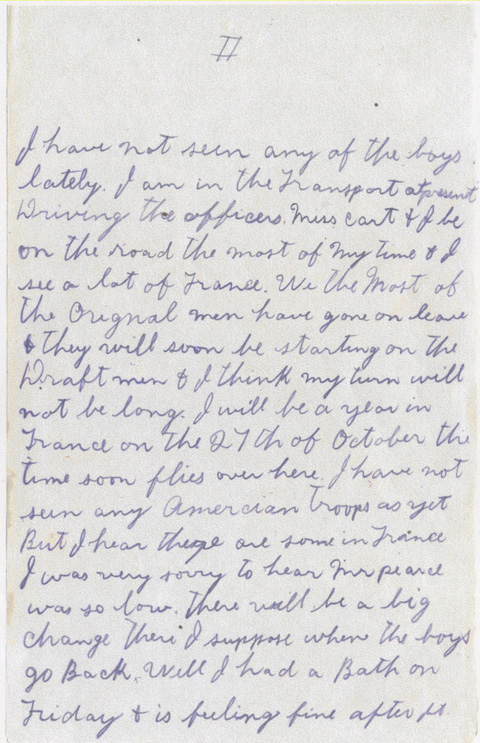 II
I have not seen any of the boys
lately. I am in the Transport at present
Driving the officers. Miss cart & I be
on the road the most of my time & I
see a lot of France. We the Most of
the Orignal men have gone on leave
& they will soon be starting on the
Draft men & I think my turn will
not be long. I will be a year in
France on the 27th of October the
time soon flies over here. I have not
seen any Amercian troops as yet
But I hear there are some in France
I was very sorry to hear Mr pearce
was so low. there will be a big
change there I suppose when the boys
go Back. Well I had a Bath on
Friday & is feeling fine after it